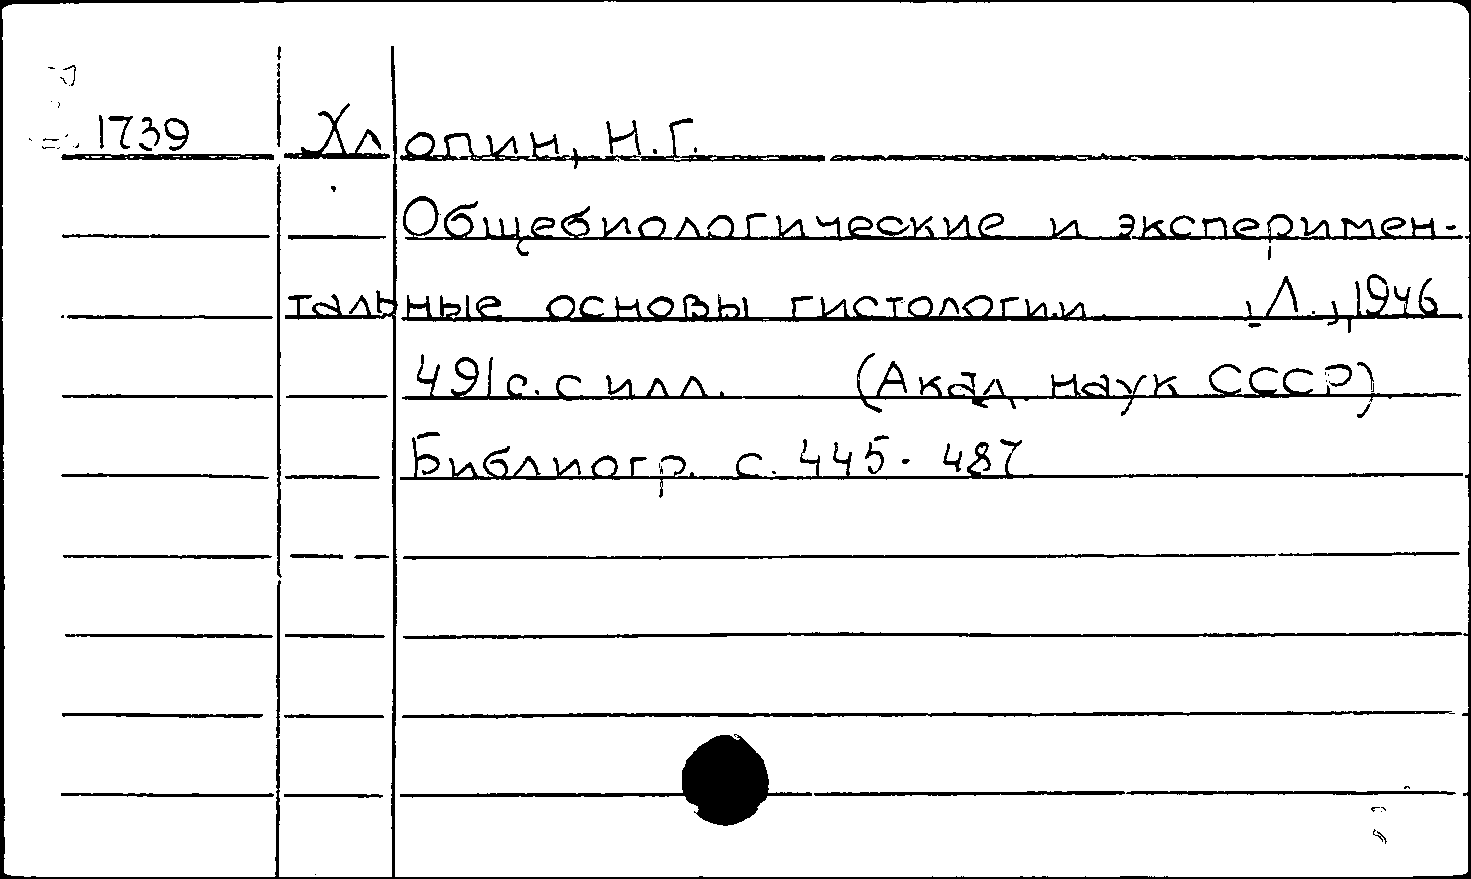 1739 Хлопин, Н.Г.
Общебиологические и эксперимен-
тальные основы гистологии. , Л., 1946
491с. с илл. (Акад. наук СССР)
Библиогр. с. 445-487